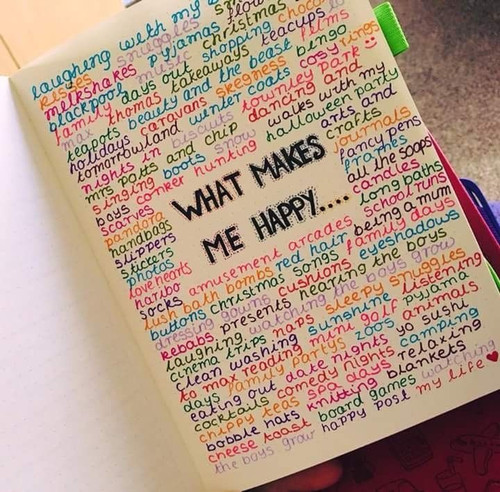 laughing with my
kisses snuggles flow
milkshakes pyjamas christmas
blackpool music shopping choco
family days out teacups
max thomas takeaways bingo films
teapots beauty and the beast cosy rings
holidays caravans skegness
tomorrowland winter coats townley park
nights in biscuits dancing and
mrs potts and chip snow walks with my
singing boots halloween party
boys conker hunting arts and
scarves crafts
pandora journals
handbags WHAT MAKES fancy pens
slippers frames
stickers ME HAPPY.... all the soaps!
photos candles
love hearts long baths
haribo amusement arcades school runs
socks red hair being a mum
lush bath bombs family days
buttons christmas songs eyeshadows
dressing gowns cushions
kebabs presents hearing the boys
laughing watching the boys grow
cinema trips maps sleepy snuggles
clean washing sunshine listening
to map reading mini golf pyjama
days family partys zoos animals
eating out date nights yo sushi
cocktails comedy nights camping
chippy teas spa days relaxing
bobble hats knitting blankets
cheese toast board games watching
the boys grow happy post my life